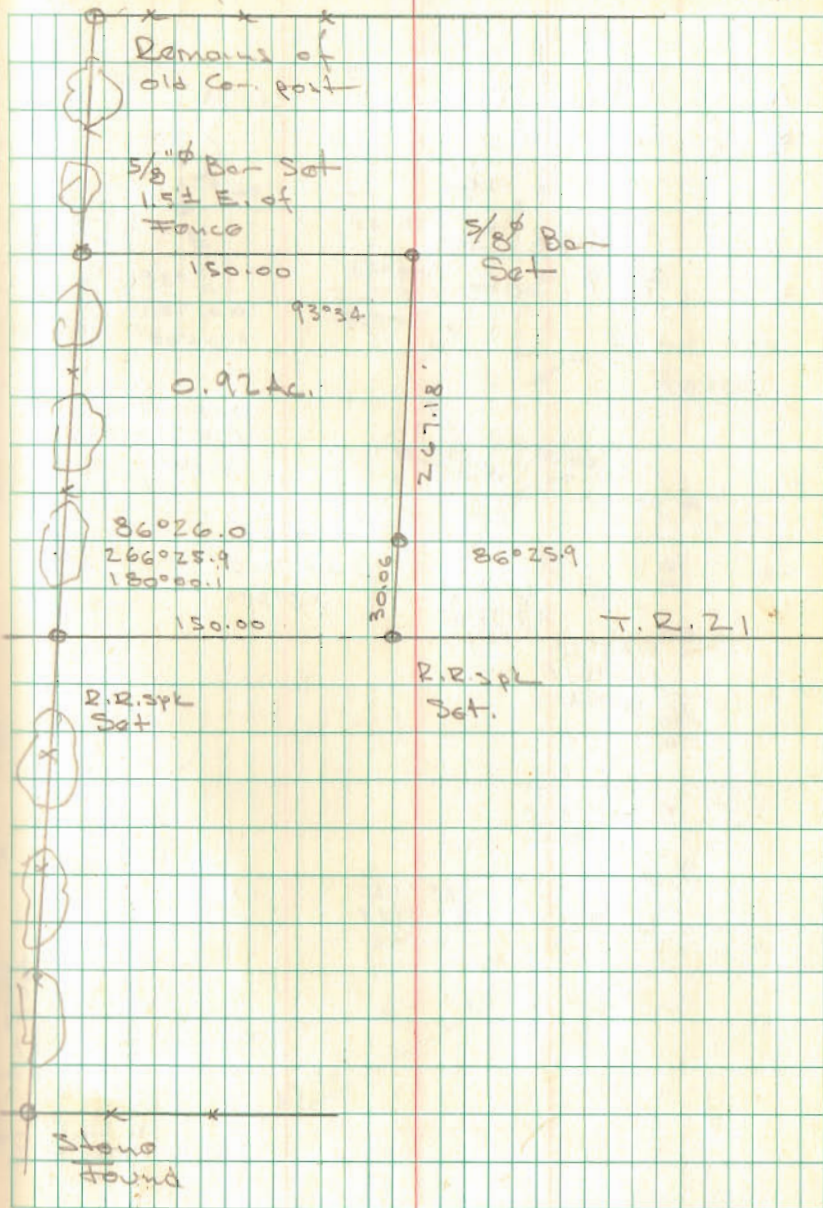 Remains of
old Cor. post
5/8"ø Bar Set
1.5'± E. of
Fence
5/8"ø Bar
Set
150.00
93°34'
0.92 Ac.
267.18'
86°26.0
266°25.9
180°00.1
86°25.9
30.06
150.00
T.R. 21
R.R. spk
Set
R.R. spk
Set.
Stone
Found